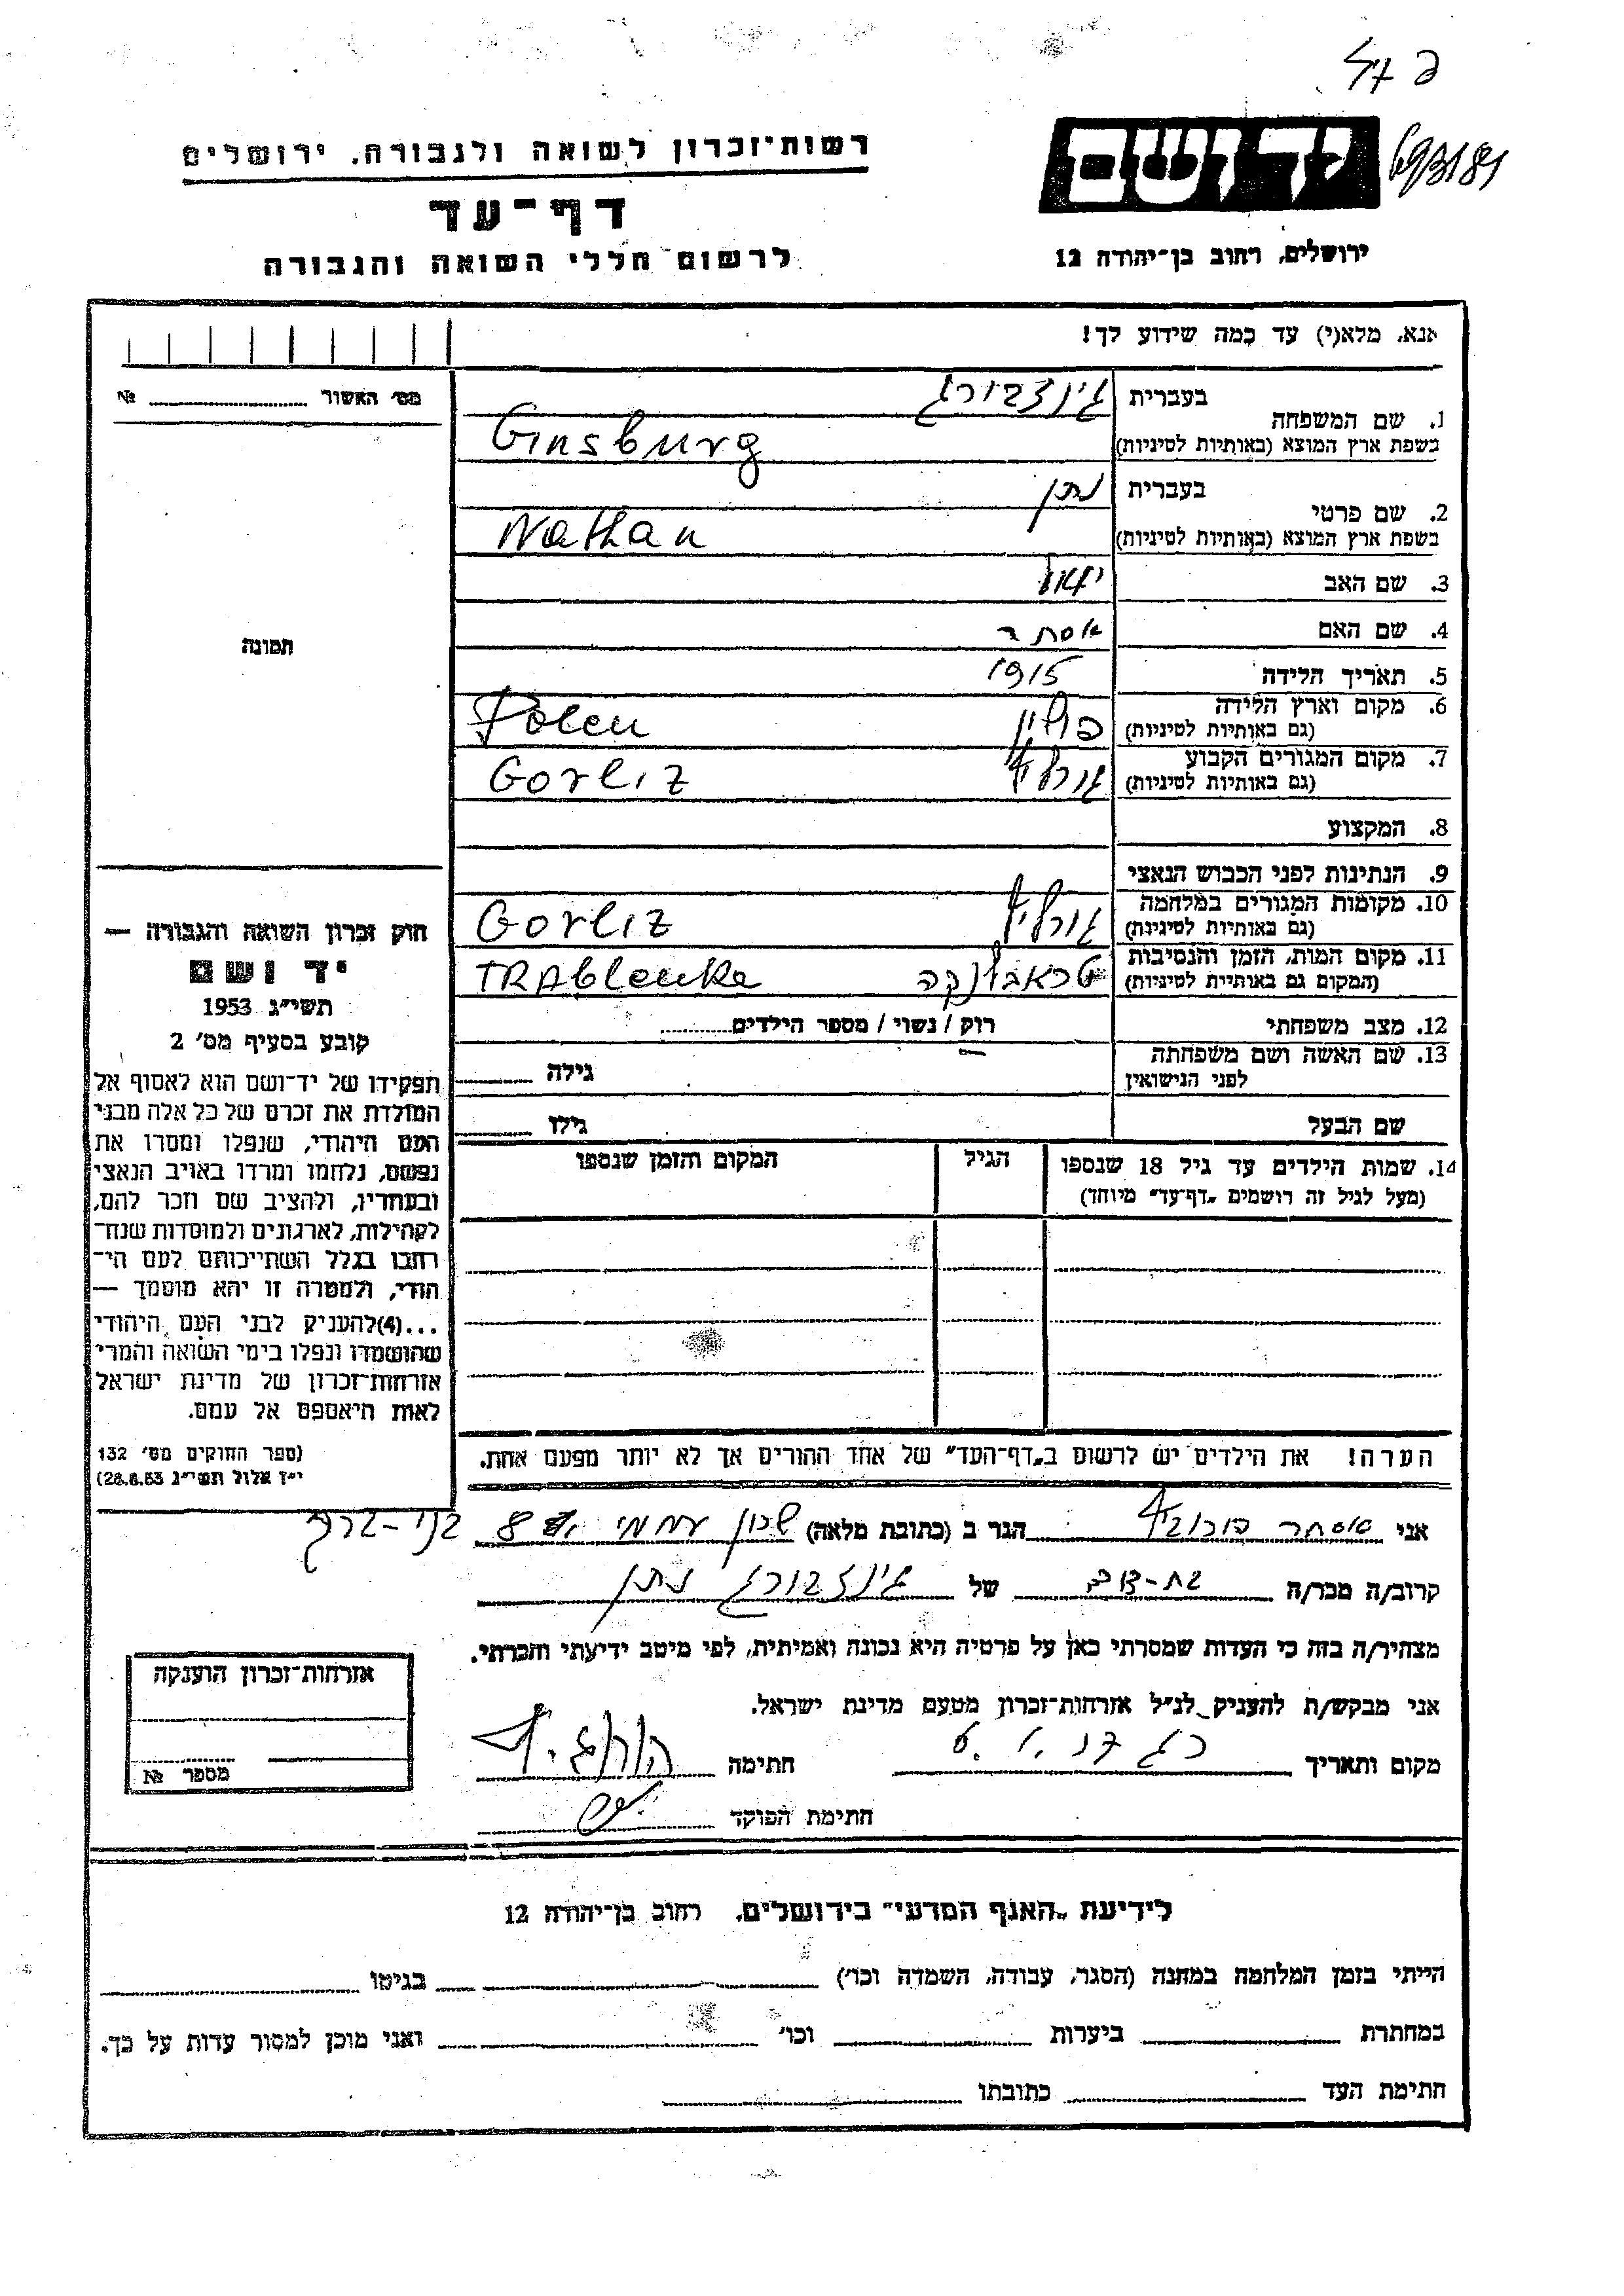 רשות־זכרון לשואה ולגבורה, ירושלים
דף־עד
לרשום חללי השואה והגבורה
יד ושם
ירושלים, רחוב בן־יהודה 12
אנא, מלא(י) עד כמה שידוע לך!
מס׳ האשור ........ №
1. שם המשפחה
בעברית גינזבורג
בשפת ארץ המוצא (באותיות לטיניות) Ginsburg
2. שם פרטי
בעברית נתן
בשפת ארץ המוצא (באותיות לטיניות) Nathan
3. שם האב
4. שם האם אסתר
5. תאריך הלידה 1915
6. מקום וארץ הלידה פולין Polen
(גם באותיות לטיניות)
7. מקום המגורים הקבוע גורליץ Gorliz
(גם באותיות לטיניות)
8. המקצוע
9. הנתינות לפני הכבוש הנאצי
10. מקומות המגורים במלחמה גורליץ Gorliz
(גם באותיות לטיניות)
11. מקום המות, הזמן והנסיבות טראבלנקה TRAblenke
(המקום גם באותיות לטיניות)
12. מצב משפחתי רוק / נשוי / מספר הילדים........
13. שם האשה ושם משפחתה
לפני הנישואין גילה
שם הבעל גילו
14. שמות הילדים עד גיל 18 שנספו הגיל המקום והזמן שנספו
(מעל לגיל זה רושמים „דף־עד״ מיוחד)
הערה! את הילדים יש לרשום ב„דף־העד״ של אחד ההורים אך לא יותר מפעם אחת.
תמונה
חוק זכרון השואה והגבורה —
יד ושם
תשי״ג 1953
קובע בסעיף מס׳ 2
תפקידו של יד־ושם הוא לאסוף אל
המולדת את זכרם של כל אלה מבני
העם היהודי, שנפלו ומסרו את
נפשם, נלחמו ומרדו באויב הנאצי
ובעוזריו, ולהציב שם וזכר להם,
לקהילות, לארגונים ולמוסדות שנח־
רבו בגלל השתייכותם לעם הי־
הודי, ולמטרה זו יהא מוסמך —
...(4)להעניק לבני העם היהודי
שהושמדו ונפלו בימי השואה והמרי
אזרחות־זכרון של מדינת ישראל
לאות היאספם אל עמם.
(ספר החוקים מס׳ 132
י״ז אלול תשי״ג 28.8.53)
אני הגר ב (כתובת מלאה) שכון עממי 8 בני-ברק
קרוב/ה מכר/ה בת-דודה של גינזבורג נתן
מצהיר/ה בזה כי העדות שמסרתי כאן על פרטיה היא נכונה ואמיתית, לפי מיטב ידיעתי והכרתי.
אני מבקש/ת להעניק לנ״ל אזרחות־זכרון מטעם מדינת ישראל.
מקום ותאריך חתימה
חתימת הפוקד
אזרחות־זכרון הוענקה
מספר №
לידיעת „האגף המדעי״ בירושלים, רחוב בן־יהודה 12
הייתי בזמן המלחמה במחנה (הסגר, עבודה, השמדה וכו׳) בגיטו
במחתרת ביערות וכו׳ ואני מוכן למסור עדות על כך.
חתימת העד כתובתו